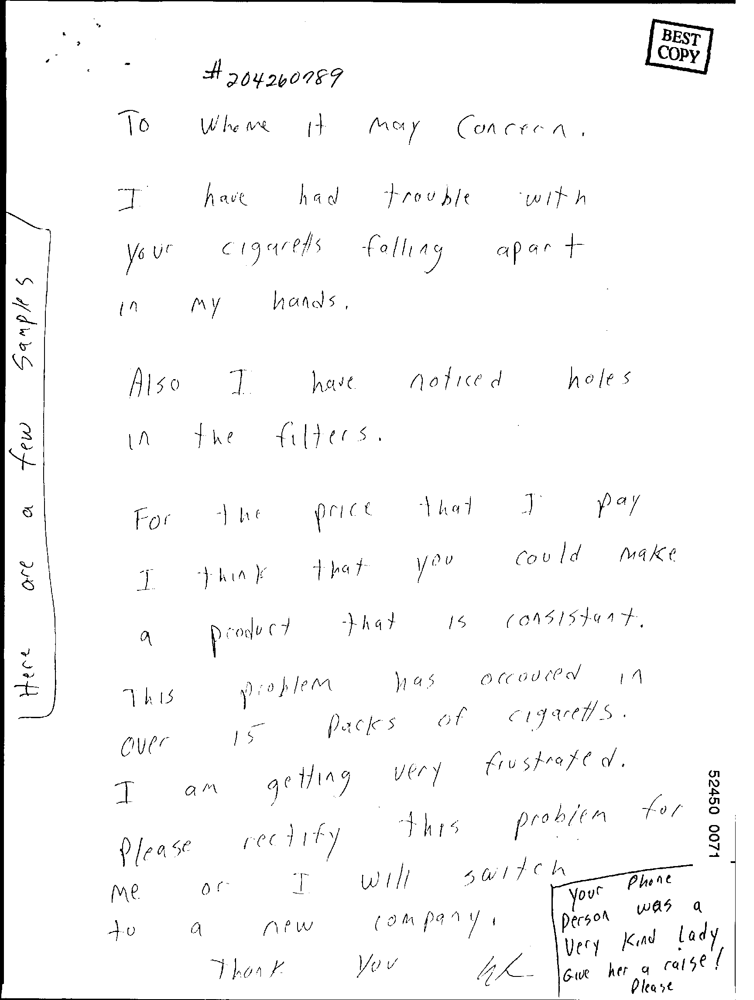 BEST
COPY
#204260789
To Whome it may Concern.
I have had trouble with
your cigaretts falling apart
in my hands.
Also I have noticed holes
in the filters.
For the price that I pay
I think that you could make
a product that is consistant.
This problem has occoured in
over 15 packs of cigaretts.
I am getting very frustrated.
Please rectify this problem for
me or I will switch
to a new company.
Thank You
Here are a few samples
Your Phone
Person was a
Very Kind Lady
Give her a raise!
Please
52450 0071